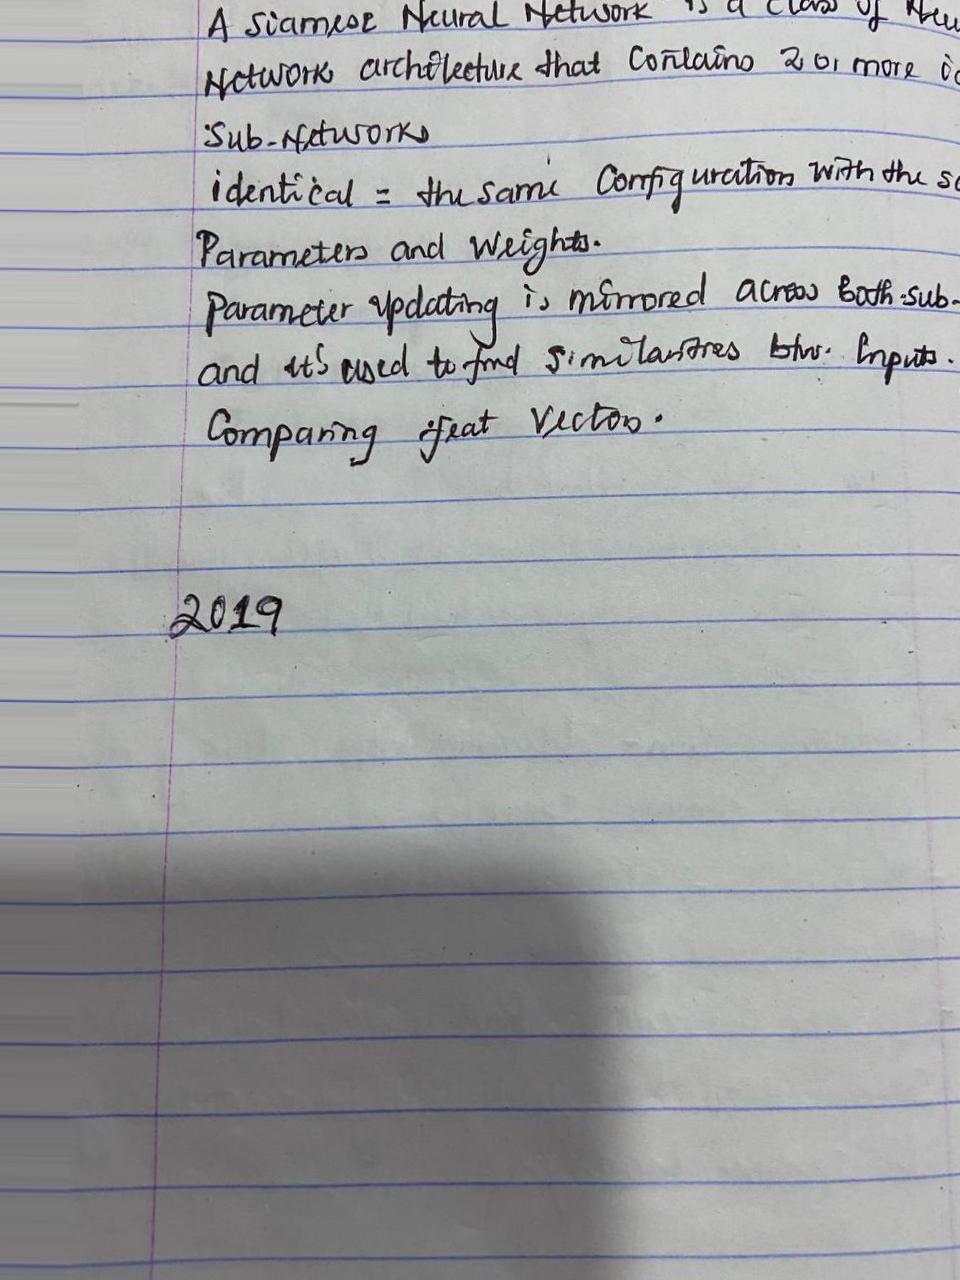 A Siamese Neural Network is a class of Neu
Network architecture that Contains 2 or more id
Sub-Networks
identical = the same Configuration with the sa
Parameters and Weights.
Parameter updating is mirrored across both sub-
and it's used to find Similarities btw. Inputs.
Comparing feat Vectors.
2019